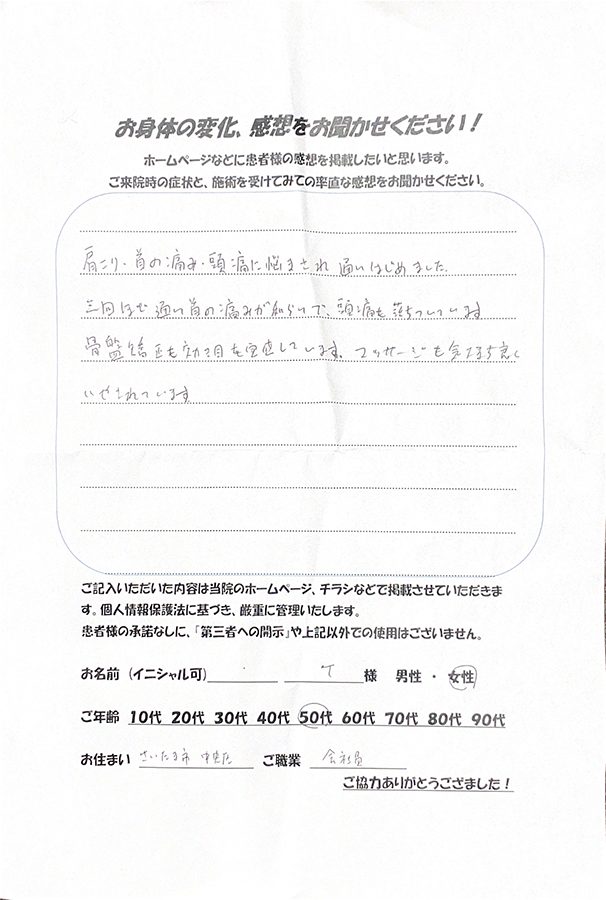 お身体の変化、感想をお聞かせください！
ホームページなどに患者様の感想を掲載したいと思います。
ご来院時の症状と、施術を受けてみての率直な感想をお聞かせください。
肩こり・首の痛み・頭痛に悩まされ 通いはじめました。
三回ほど 通い首の痛みが和らいで、頭痛も落ちついています
骨盤矯正も効果を実感しています。マッサージも気持ち良く
いやされています
ご記入いただいた内容は当院のホームページ、チラシなどで掲載させていただきま
す。個人情報保護法に基づき、厳重に管理いたします。
患者様の承諾なしに、「第三者への開示」や上記以外での使用はございません。
お名前 (イニシャル可) T 様 男性 ・ 女性
ご年齢 10代 20代 30代 40代 50代 60代 70代 80代 90代
お住まい さいたま市 中央区 ご職業 会社員
ご協力ありがとうござました！